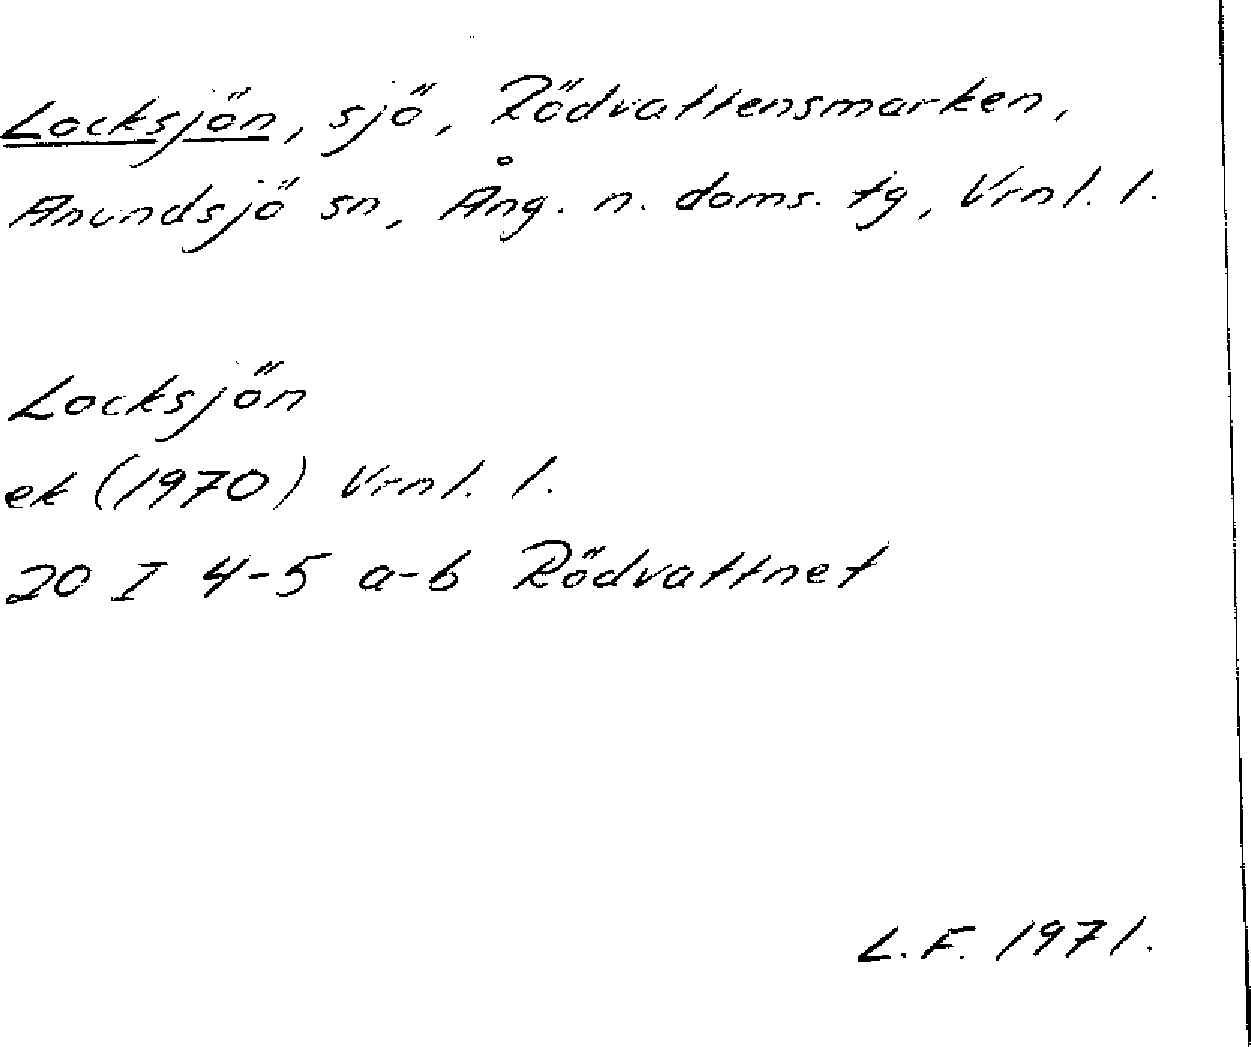 Locksjön, sjö, Rödvattensmarken,
Anundsjö sn, Ång. n. doms. tg, Vrnl. l.
Locksjön
ek (1970) Vrnl. l.
20 I 4-5 a-b Rödvattnet
L.F. 1971.